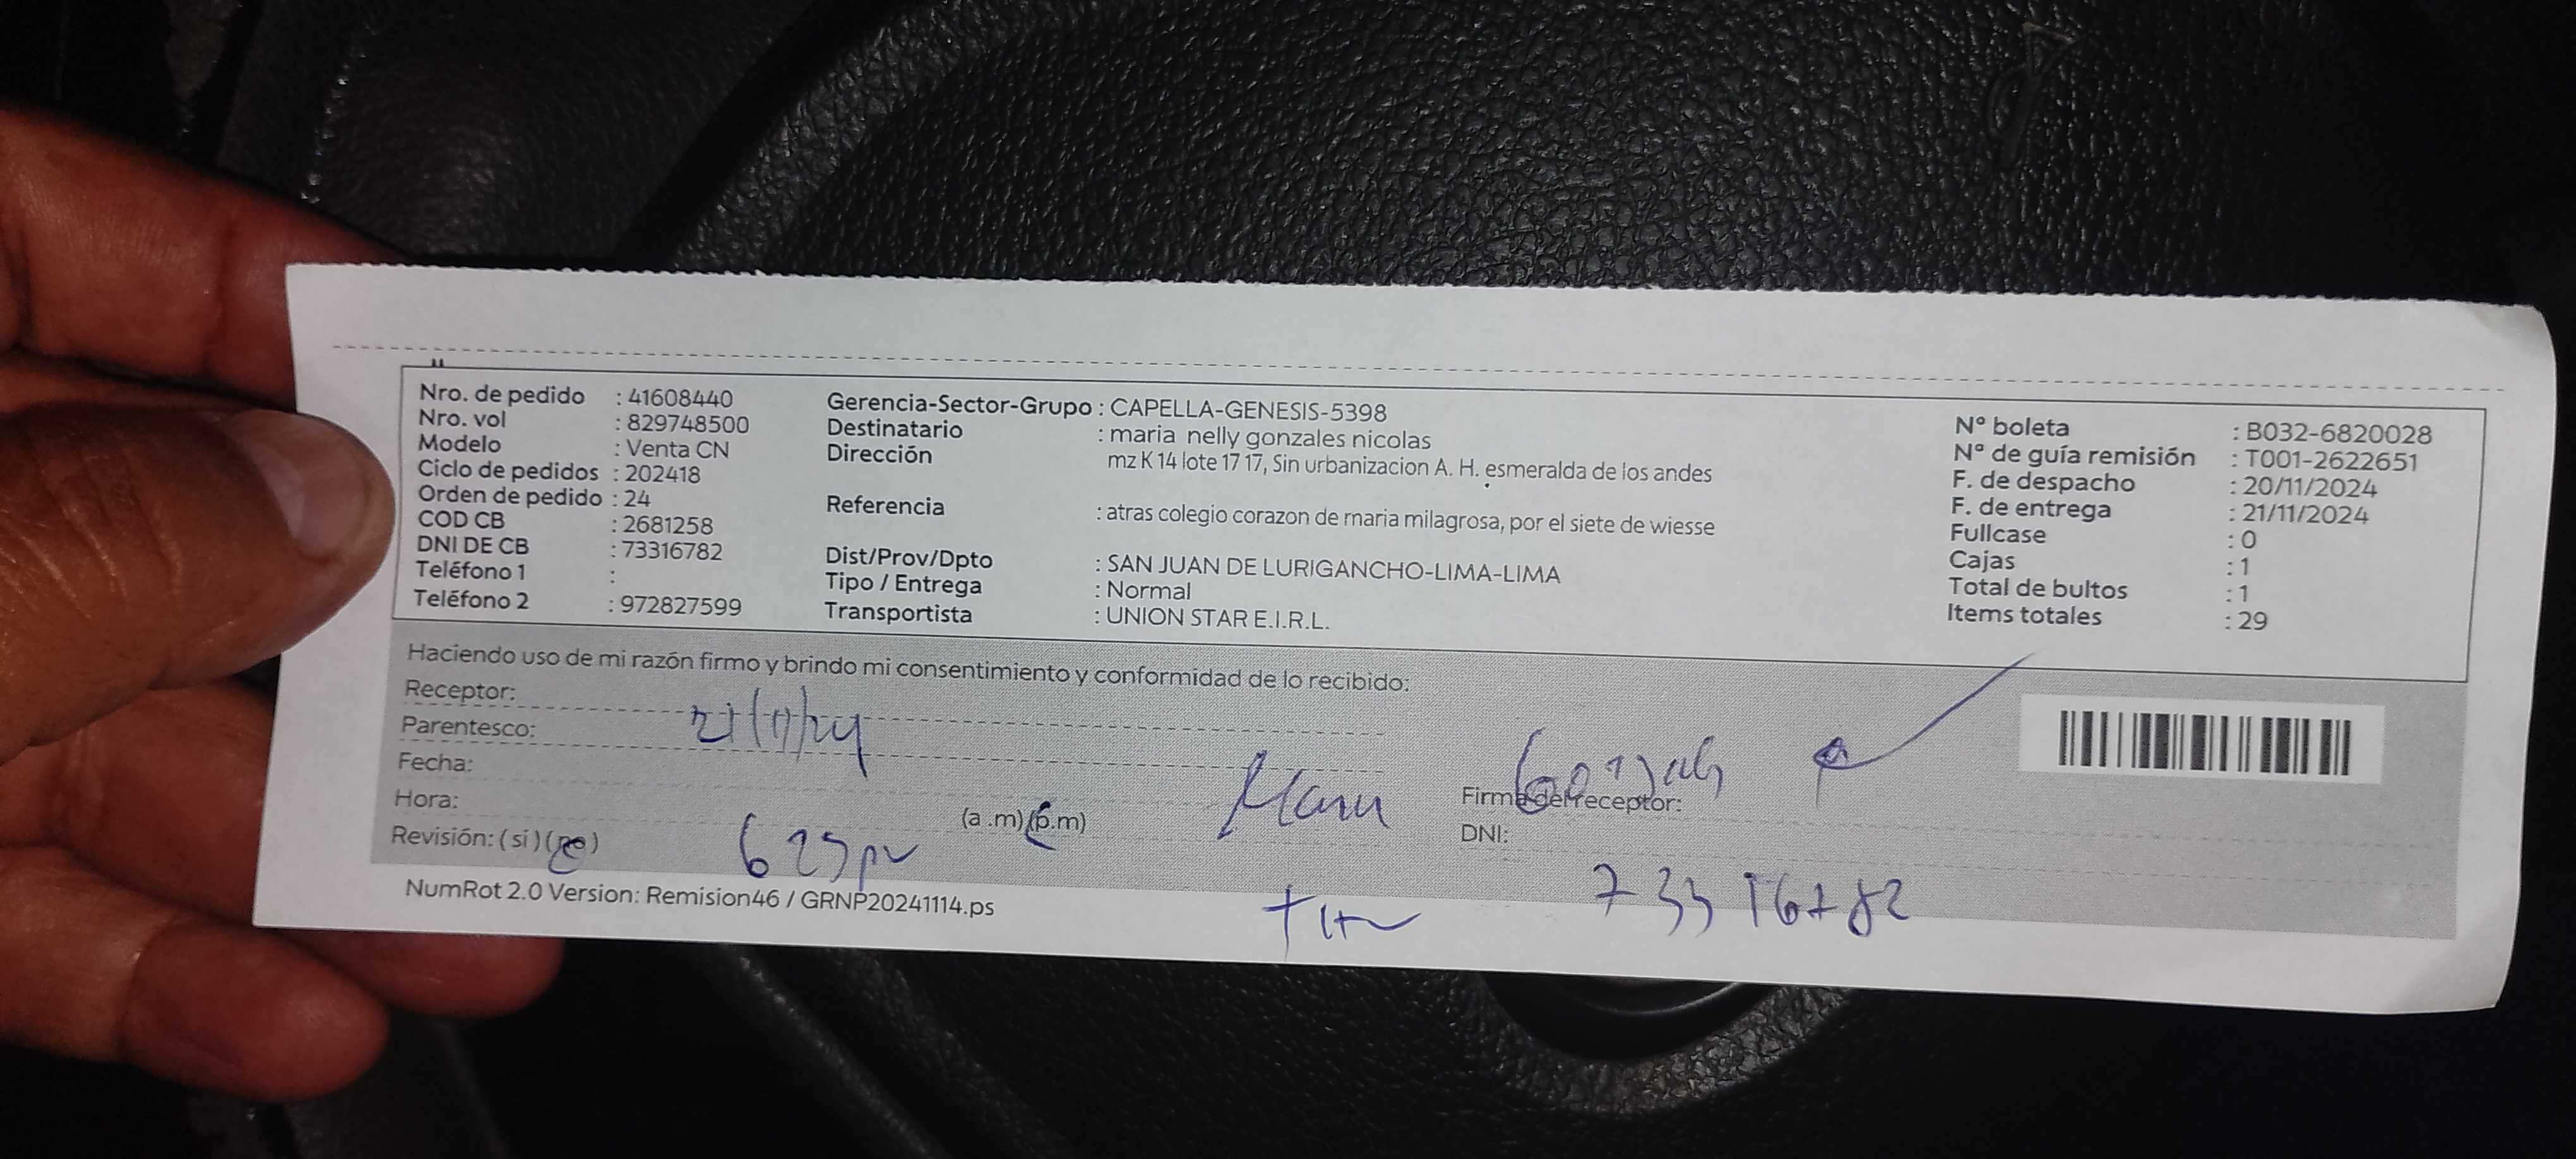 Nro. de pedido : 41608440
Nro. vol : 829748500
Modelo : Venta CN
Ciclo de pedidos : 202418
Orden de pedido : 24
COD CB : 2681258
DNI DE CB : 73316782
Teléfono 1 :
Teléfono 2 : 972827599
Gerencia-Sector-Grupo : CAPELLA-GENESIS-5398
Destinatario : maria nelly gonzales nicolas
Dirección mz K 14 lote 17 17, Sin urbanizacion A. H. esmeralda de los andes
Referencia : atras colegio corazon de maria milagrosa, por el siete de wiesse
Dist/Prov/Dpto : SAN JUAN DE LURIGANCHO-LIMA-LIMA
Tipo / Entrega : Normal
Transportista : UNION STAR E.I.R.L.
N° boleta : B032-6820028
N° de guía remisión : T001-2622651
F. de despacho : 20/11/2024
F. de entrega : 21/11/2024
Fullcase : 0
Cajas : 1
Total de bultos : 1
Items totales : 29
Haciendo uso de mi razón firmo y brindo mi consentimiento y conformidad de lo recibido:
Receptor:
Parentesco:
21/11/24
Fecha:
Hora: (a .m) (p.m)
Revisión: ( si ) ( no )
Firma del receptor:
DNI:
73316782
NumRot 2.0 Version: Remision46 / GRNP20241114.ps